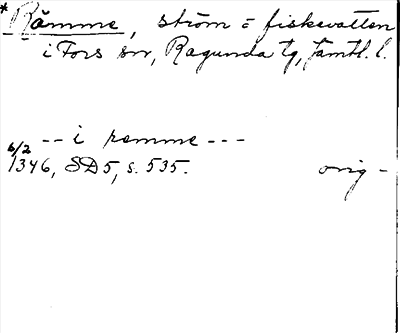 * Rämme, ström = fiskevatten
i Fors sn, Ragunda tg, Jämtl. l.
-- i remme ---
6/2
1346, SD5, s. 535. orig -